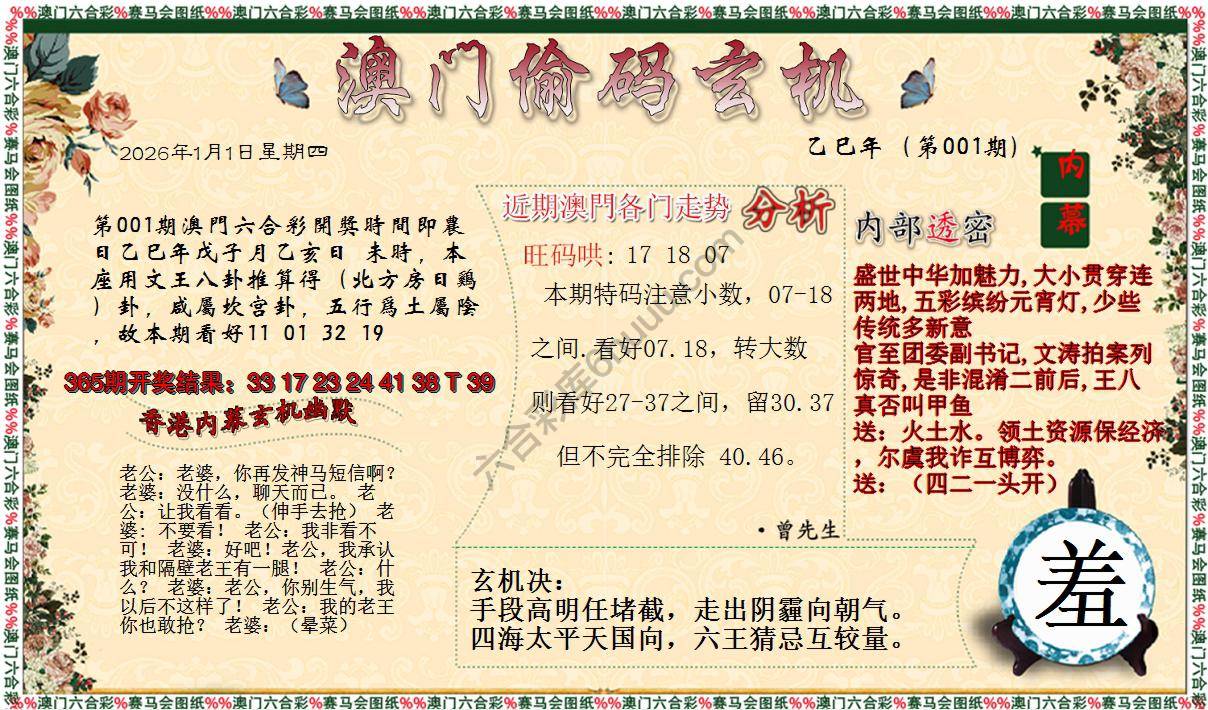 %%澳门六合彩%赛马会图纸%%澳门六合彩%赛马会图纸%%澳门六合彩%赛马会图纸%%澳门六合彩%赛马会图纸%%澳门六合彩%赛马会图纸%%澳门六合彩%赛马会图纸%%
澳门偷码玄机
2026年1月1日星期四
乙巳年（第001期）
内幕
第001期澳門六合彩開獎時間即農
日乙巳年戊子月乙亥日 未時，本
座用文王八卦推算得（北方房日鷄
）卦，咸屬坎宫卦，五行爲土屬陰
，故本期看好11 01 32 19
365期开奖结果：33 17 23 24 41 38 T 39
香港内幕玄机幽默
老公：老婆，你再发神马短信啊？
老婆：没什么，聊天而已。 老
公：让我看看。（伸手去抢） 老
婆: 不要看！ 老公：我非看不
可！ 老婆：好吧！老公，我承认
我和隔壁老王有一腿！ 老公：什
么？ 老婆：老公，你别生气，我
以后不这样了！ 老公：我的老王
你也敢抢？ 老婆：（晕菜）
近期澳門各门走势 分析
旺码哄: 17 18 07
本期特码注意小数，07-18
之间.看好07.18，转大数
则看好27-37之间，留30.37
但不完全排除 40.46。
·曾先生
内部透密
盛世中华加魅力,大小贯穿连
两地,五彩缤纷元宵灯,少些
传统多新意
官至团委副书记,文涛拍案列
惊奇,是非混淆二前后,王八
真否叫甲鱼
送：火土水。领土资源保经济
，尔虞我诈互博弈。
送：（四二一头开）
玄机决：
手段高明任堵截，走出阴霾向朝气。
四海太平天国向，六王猜忌互较量。
羞
六合彩库6huuu.com
%%澳门六合彩%赛马会图纸%%澳门六合彩%赛马会图纸%%澳门六合彩%赛马会图纸%%澳门六合彩%赛马会图纸%%澳门六合彩%赛马会图纸%%澳门六合彩%赛马会图纸%%